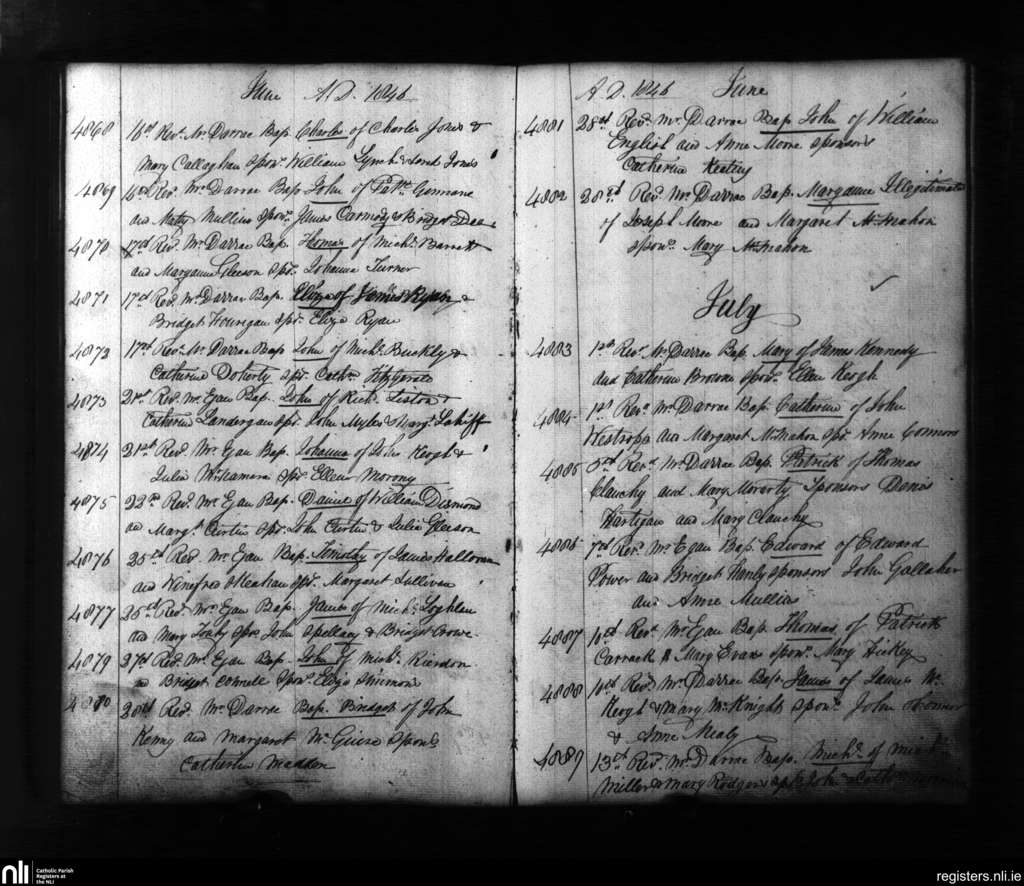 June A.D. 1846
4868 16th Revd. Mr Darrae Bap. Charles of Charles Jones &
Mary Callaghan Sponr. William Lynch & Jones
4869 16th Rev Mr. Darrae Bap John of Patk.
and Mary Mullins Sponr. James Carmody & Bridget Dea
4870 17th Rev. Mr. Darrae Bap. Thomas of Michl. Barrett
and Maryanne Gleeson Spr. Johanna Turner
4871 17th Revd. Mr. Darrae Bap. Eliza of James Ryan &
Bridget Hourigan Spr. Eliza Ryan
4872 17th Revd. Mr. Darrae Bap John of Michl. Buckly &
Catherine Doherty Spr. Cathn. Fitzgerald
4873 21st Revd. Mr. Egan Bap. John of Richd. Liston &
Catherine Landergan Spr. John Myles & Margt. Lahiff
4874 21st Rev. Mr. Egan Bap. Johanna of John Keogh &
Julia McNamara Spr. Ellen Morony
4875 22nd Revd. Mr. Egan Bap. Daniel of William Dismond
and Margt. Curtin Spr. John Curtin & Julia Gleeson
4876 25th Rev. Mr. Egan Bap. Timothy of James Halloran
and Winefred Meehan Spr. Margaret Sullivan
4877 25th Revd. Mr. Egan Bap. James of Michl. Loghlen
and Mary Spr. John Spellacy & Bridget Crowe
4879 27th Revd. Mr. Egan Bap. John of Michl. Riordon
& Bridget Spr. Eliza Simmons
4880 28th Revd. Mr Darrae Bap. Bridget of John
Kenny and Margaret Mc Guire Sponr.
Catherine Madden
A.D. 1846 June
4881 28th Revd. Mr. Darrae Bap John of William
English and Anne Moore Sponsors
Catherine Keating
4882 28th Revd. Mr Darrae Bap. Maryanne Illegitimate
of Joseph Moore and Margaret McMahon
Spon. Mary McMahon
July
4883 1st Revd. Mr Darrae Bap. Mary of James Kennedy
and Catherine Browne Sponr. Ellen Keogh
4884 1st Revd. Mr Darrae Bap. Catherine of John
Westropp and Margaret McMahon Spr. Anne Connors
4885 5th Revd. Mr Darrae Bap. Patrick of Thomas
Clanchy and Mary Moriarty Sponsors Denis
Hartigan and Mary Clanchy
4886 7th Revd. Mr Egan Bap. Edward of Edward
Power and Bridget Hanly Sponsors John Gallaher
and Anne Mullins
4887 10th Revd. Mr. Egan Bap. Thomas of Patrick
Carrack & Mary Evans Sponr. Mary Hickey
4888 10th Revd. Mr. Darrae Bap. James of James Mc
Keogh & Mary McKnight Sponr. John O'Connor
& Anne Mealy
4889 13th Revd. Mr. Darrae Bap. Michl. of Michl.
Miller & Mary Rodgers Spr. John & Cath
nli
Catholic Parish
Registers at
the NLI
registers.nli.ie